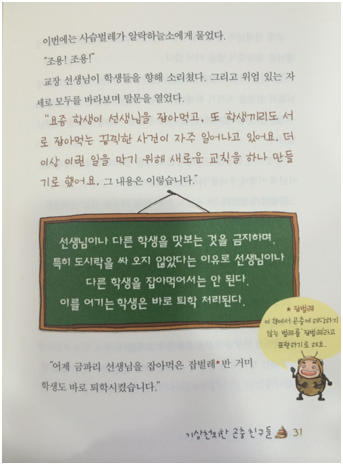 이번에는 사슴벌레가 알락하늘소에게 물었다.
“조용! 조용!”
교장 선생님이 학생들을 향해 소리쳤다. 그리고 위엄 있는 자
세로 모두를 바라보며 말문을 열었다.
“요즘 학생이 선생님을 잡아먹고, 또 학생끼리도 서
로 잡아먹는 끔찍한 사건이 자주 일어나고 있어요. 더
이상 이런 일을 막기 위해 새로운 교칙을 하나 만들
기로 했어요. 그 내용은 이렇습니다.”
선생님이나 다른 학생을 맛보는 것을 금지하며,
특히 도시락을 싸 오지 않았다는 이유로 선생님이나
다른 학생을 잡아먹어서는 안 된다.
이를 어기는 학생은 바로 퇴학 처리된다.
* 잡벌레
이 책에서 곤충에 해당하지
않는 벌레를 잡벌레라고
표현하기로 해요.
“어제 금파리 선생님을 잡아먹은 잡벌레* 반 거미
학생도 바로 퇴학시켰습니다.”
기상천외한 곤충 친구들 31